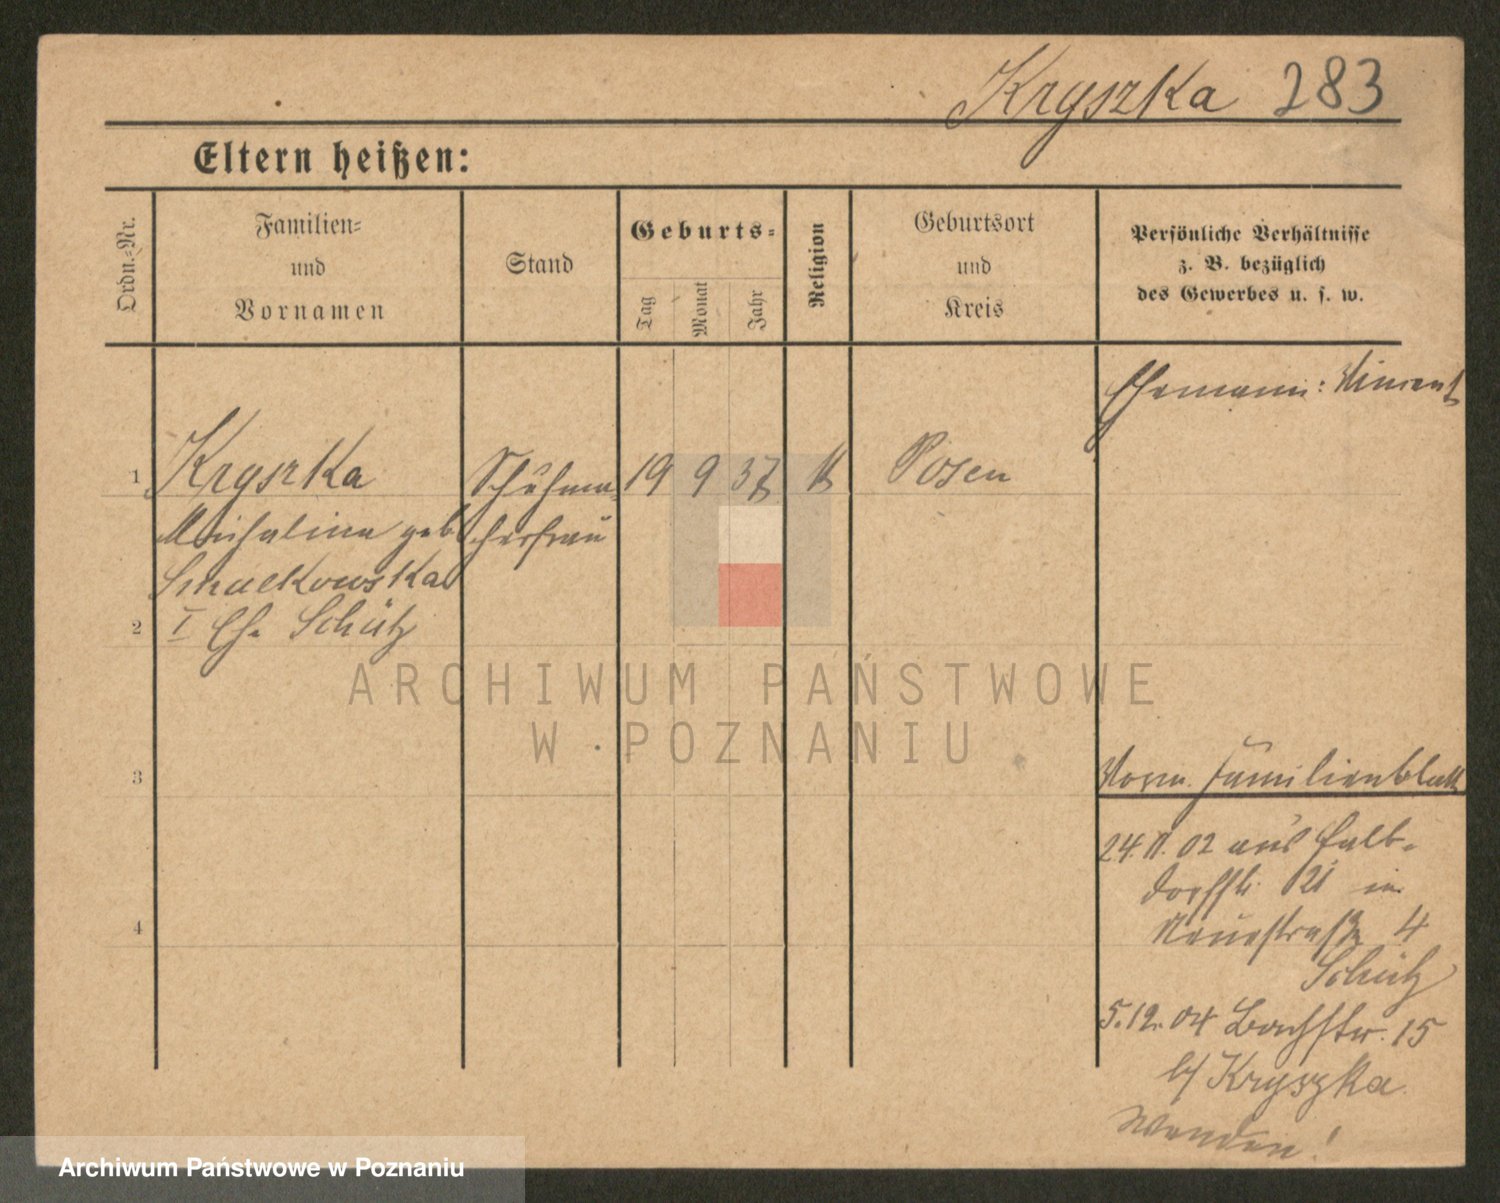 Kryszka 283
Eltern heißen:
Ordn.-Nr.
Familien-
und
Vornamen
Stand
Geburts-
Tag
Monat
Jahr
Religion
Geburtsort
und
Kreis
Persönliche Verhältnisse
z. B. bezüglich
des Gewerbes u. s. w.
Ehemann: Vincent
1 Kryszka Schuhma- 19 9 37 K Posen
Michalina geb cherfrau
Smulkowska
2 I Eh. Schütz
ARCHIWUM PAŃSTWOWE
W POZNANIU
3
Familienblatt
24. 11. 02 aus Halb-
dorfstr. 21 in
4 Neuestraße 4
Schütz
5. 12. 04 Bachstr. 15
b/ Kryszka
Wenden!
Archiwum Państwowe w Poznaniu